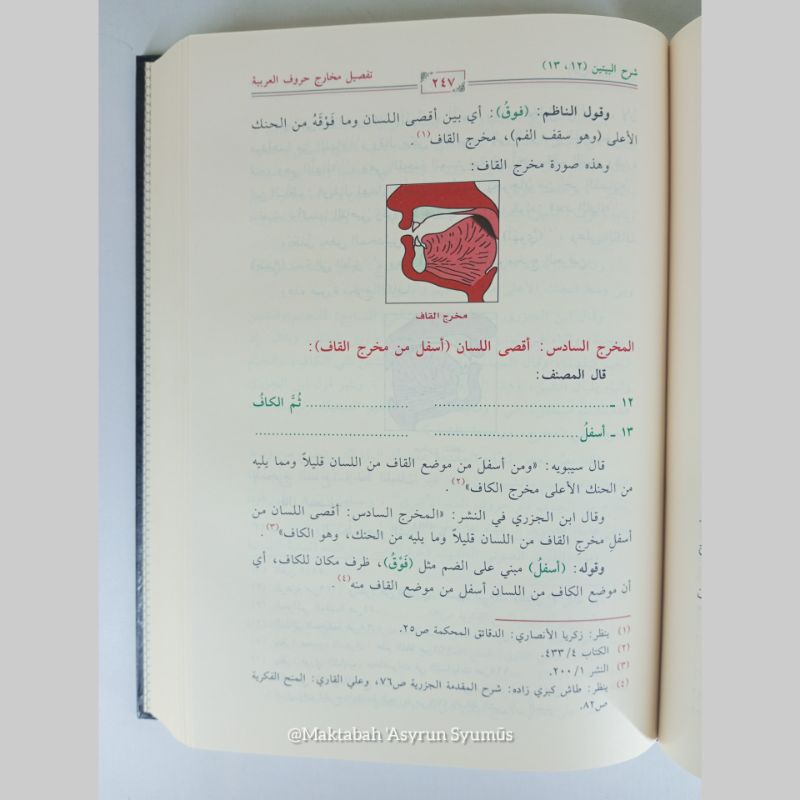 شرح البيتين (١٢، ١٣)
٢٤٧
تفصيل مخارج حروف العربية
وقول الناظم: (فوقُ): أي بين أقصى اللسان وما فَوْقَهُ من الحنك
الأعلى (وهو سقف الفم)، مخرج القاف(١).
وهذه صورة مخرج القاف:
مخرج القاف
المخرج السادس: أقصى اللسان (أسفل من مخرج القاف):
قال المصنف:
١٢ ـ........................................ ........................ ثُمَّ الكافُ
١٣ ـ أسفلُ............................ ....................................
قال سيبويه: «ومن أسفلَ من موضع القاف من اللسان قليلاً ومما يليه
من الحنك الأعلى مخرج الكاف»(٢).
وقال ابن الجزري في النشر: «المخرج السادس: أقصى اللسان من
أسفلِ مخرجِ القاف من اللسان قليلاً وما يليه من الحنك، وهو الكاف»(٣).
وقوله: (أسفلُ) مبني على الضم مثل (فَوْقُ)، ظرف مكان للكاف، أي
أن موضع الكاف من اللسان أسفل من موضع القاف منه(٤).
(١) ينظر: زكريا الأنصاري: الدقائق المحكمة ص٢٥.
(٢) الكتاب ٤/ ٤٣٣.
(٣) النشر ١/ ٢٠٠.
(٤) ينظر: طاش كبري زاده: شرح المقدمة الجزرية ص٧٦، وعلي القاري: المنح الفكرية
ص٨٢.
@Maktabah 'Asyrun Syumūs